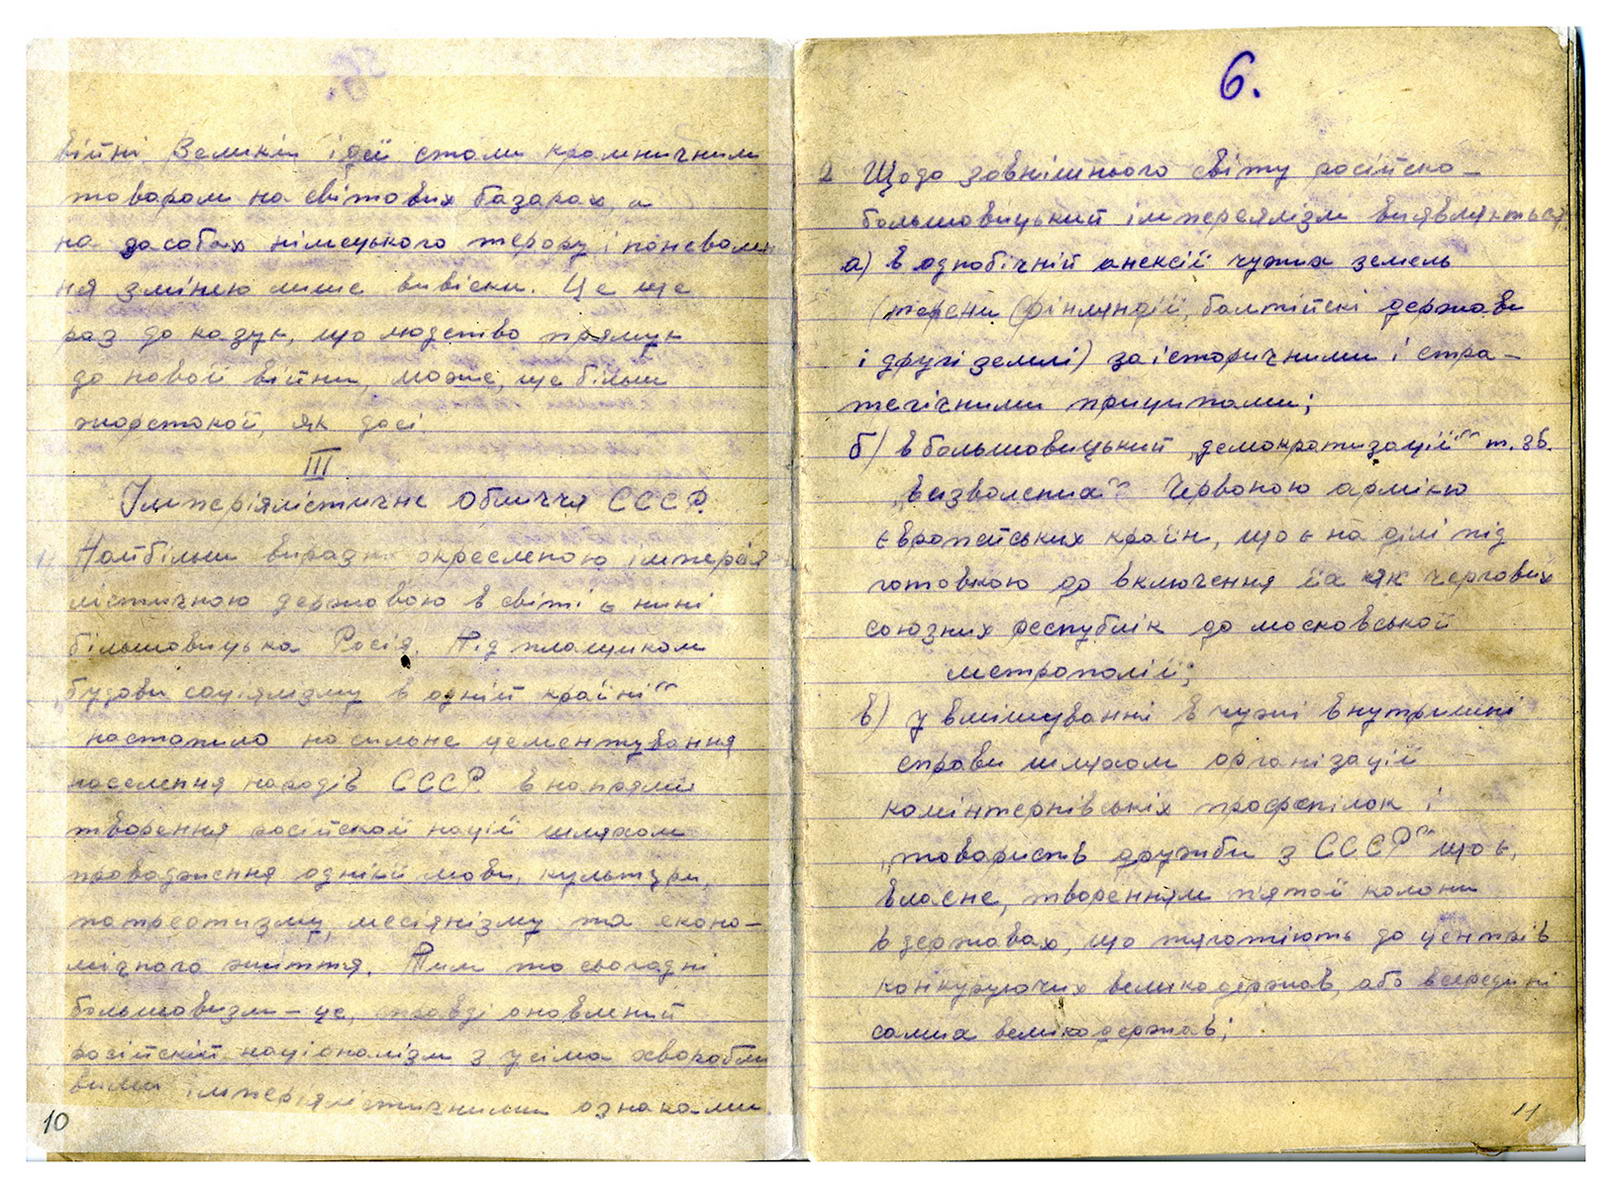 війні. Великі ідеї стали крамничним
товаром на світових базарах, а
на засобах німецького терору і поневолен
ня змінено лише вивіски. Це ще
раз доказує, що людство прямує
до нової війни, може, ще більш
жорстокої, як досі.
III
Імперіялістичне обличчя СССР.
1. Найбільш виразно окресленою імперія-
лістичною державою в світі є нині
більшовицька Росія. Під плащиком
„будови соціялізму в одній країні"
наступило насильне цементування
населення народів СССР в напрямі
творення російской нації шляхом
провадження одніей мови, культури,
патреотизму, месіянізму та еконо-
мічного життя. Тим то сьогодні
большовизм – це, оновлений
російский націоналізм з усіма хворобли
вими імперіялістичними ознаками
10
6.
2 Щодо зовнішнього світу російско-
большовицький імпереялізм виявляється,
а) в однобічній анексії чужих земель
(терени Фінляндії, балтійскі держави
і другі землі) за історичними і стра-
тегічними приципами;
б) в большовицький „демократизації" т. зв.
„визволених" Червоною армією
європейських країн, що є на ділі під
готовкою до включення їх як чергових
союзних республік до московської
метрополії;
в) у вмішуванні в чужі внутришні
справи шляхом організацій
комінтернівскіх профспілок і
„товариств дружби з СССР" що є,
власне, творенням п'ятої колони
в державах, що тяготіють до центрів
конкуруючих великодержав, або всередині
самих великодержав;
11